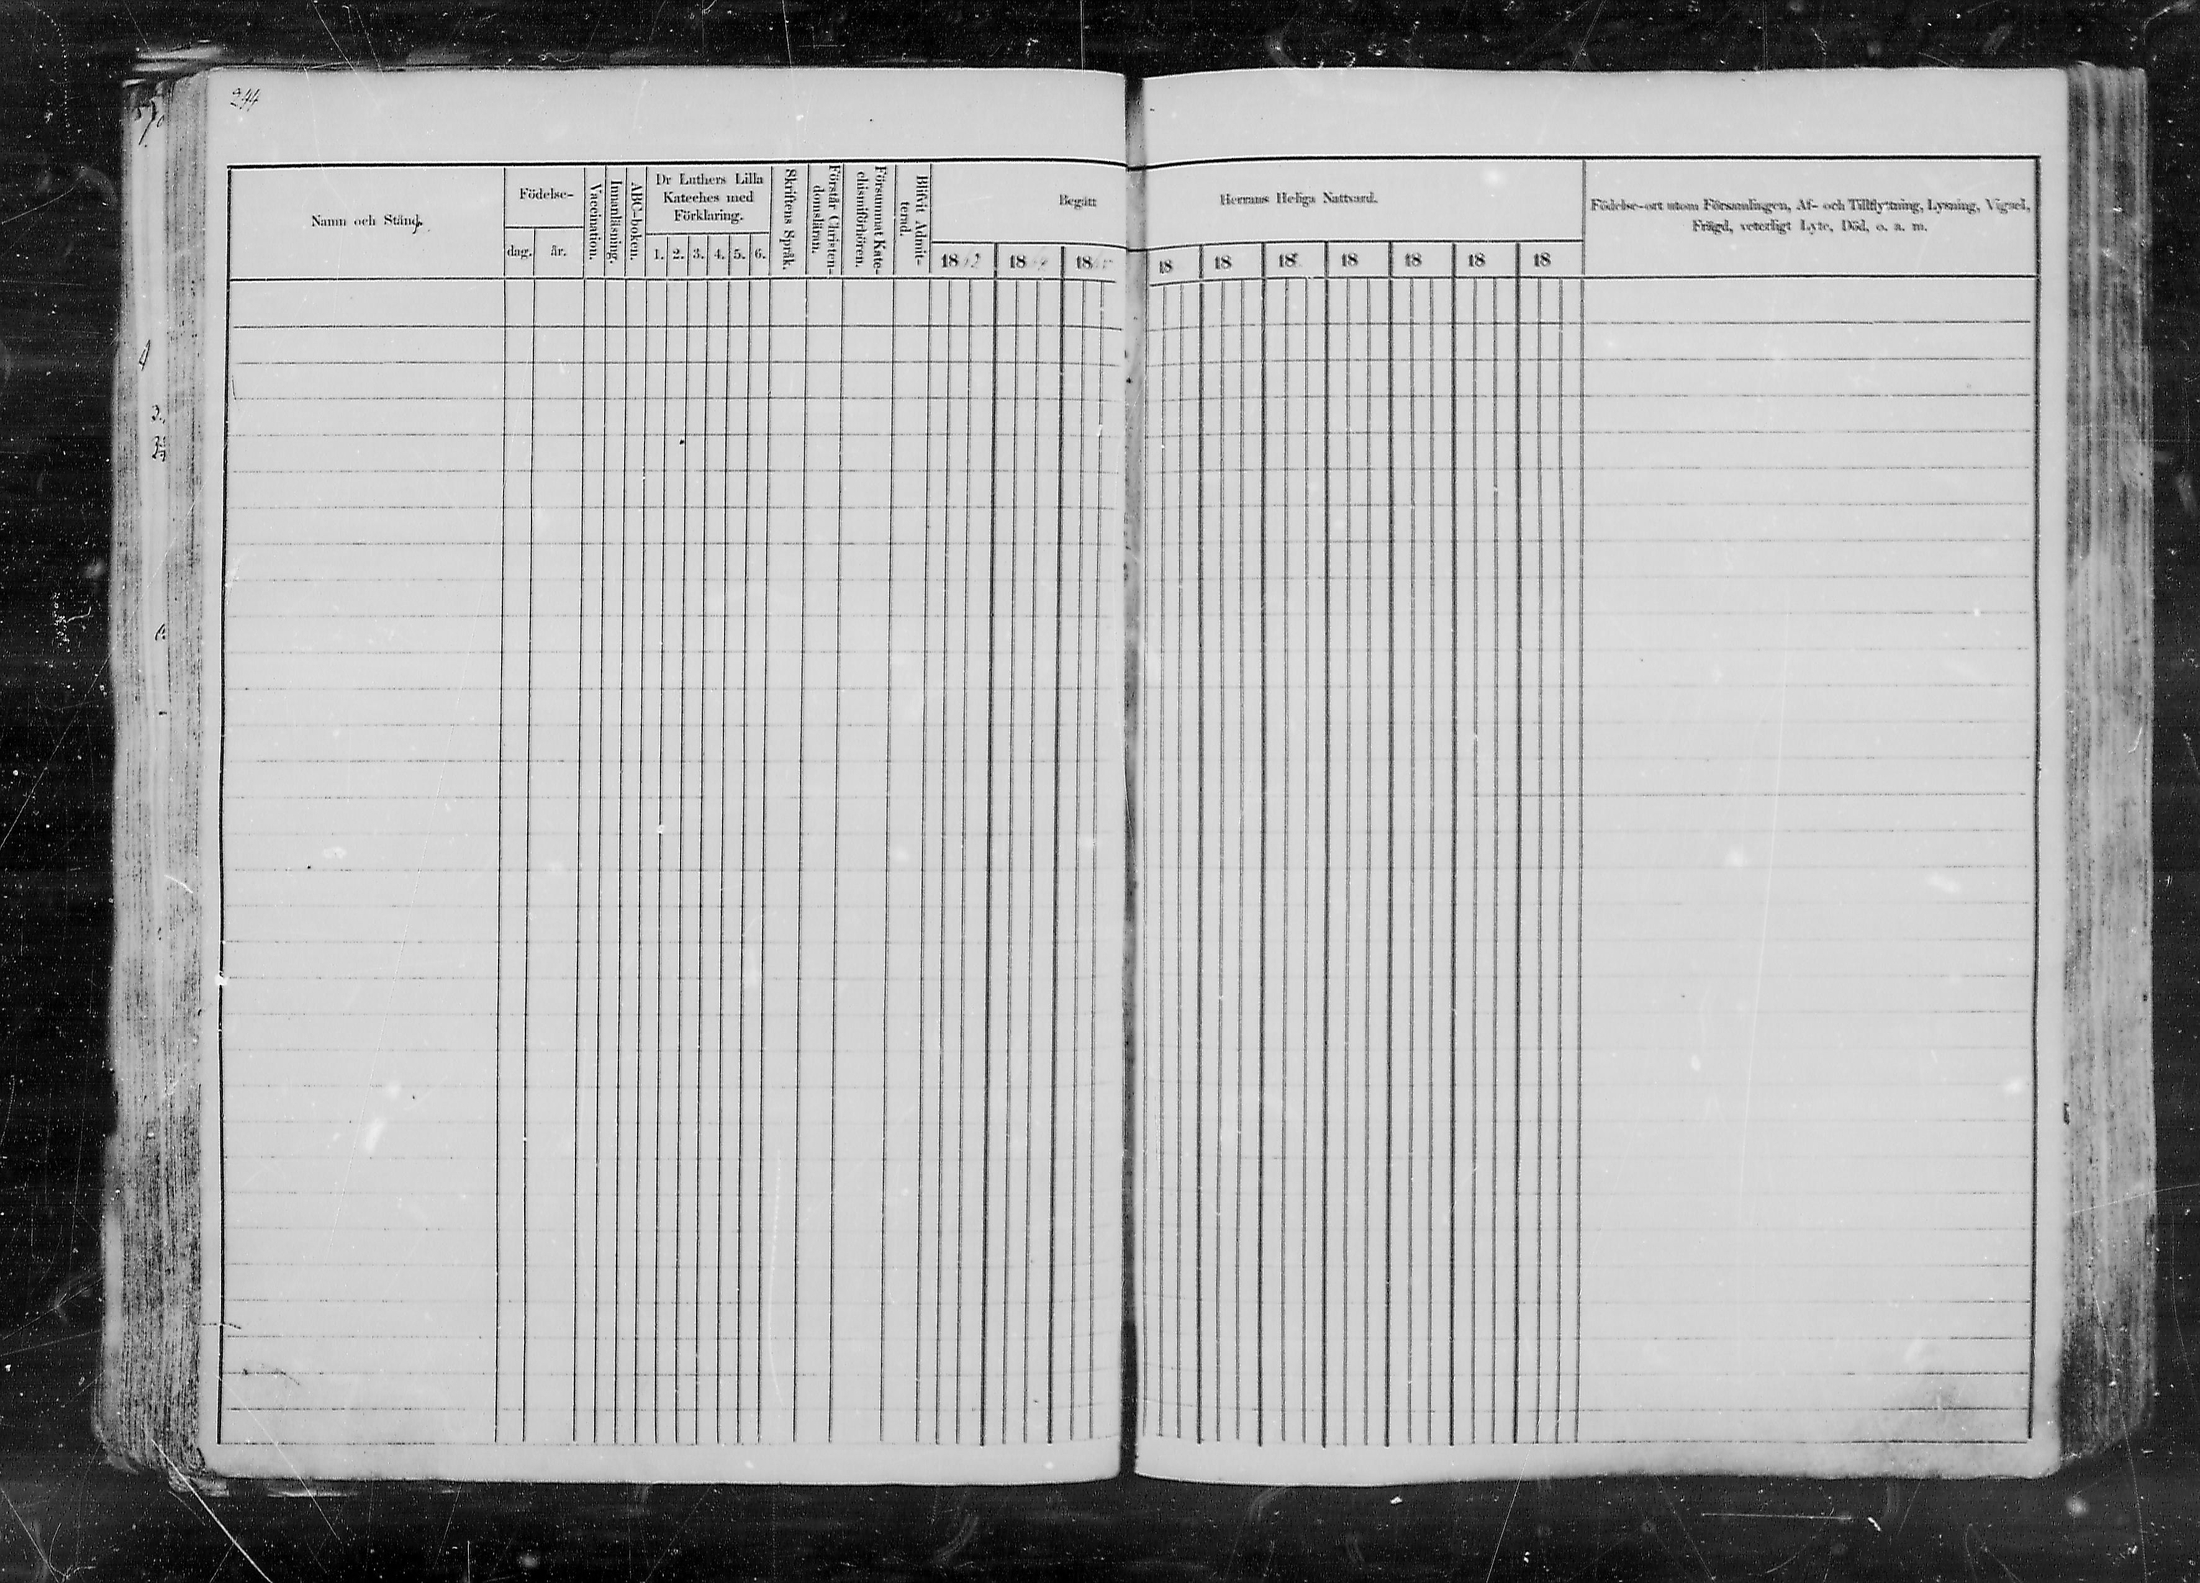 244
Namn och Stånd.
Födelse-
dag.
år.
Vaccination.
Innanläsning.
ABC-boken.
Dr Luthers Lilla
Kateches med
Förklaring.
1. 2. 3. 4. 5. 6.
Skriftens Språk.
Förstår Christen-
domsläran.
Försummat Kate-
chismiförhören.
Blifvit Admit-
terad.
Begått
18
18
18
Herrans Heliga Nattvard.
18 18 18 18 18 18 18
Födelse-ort utom Församlingen, Af- och Tillflyttning, Lysning, Vigsel,
Frägd, veterligt Lyte, Död, o. a. m.